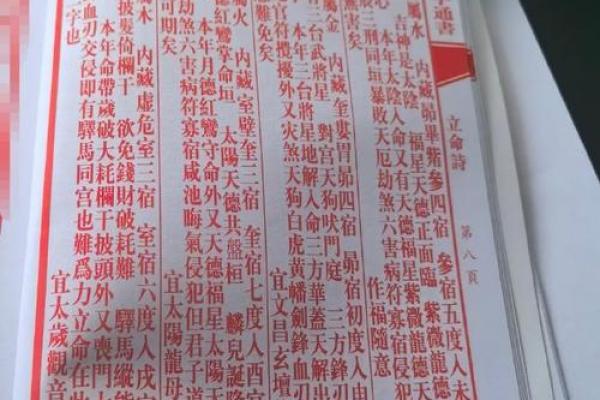 通書
立命詩
第八頁
屬水 內藏昴畢觜參四宿 參宿五度入未
吉神是太陰 福星天德正面臨 紫微龍德
本年太陰入命又有天德福星紫微龍德天
辰三刑同垣暴敗天厄劫煞六害病符寡宿侵犯
心 作福隨意
無害矣
屬金 內藏奎婁胃昴四宿 昴宿初度入
有三台武將星 對宮天狗吠門庭 三方鋒刃
本年三台將星地解入命三方華蓋天解出
官符擾外又災煞天狗白虎黃幡劍鋒血刃
難免矣 宜文昌玄壇
屬火 內藏室壁奎三宿 奎宿七度入酉宮
德紅鸞掌命垣 太陽天德共盤桓 麟兒誕
本年月德紅鸞守命外又天德福星太陽天
劫煞六害病符寡宿咸池晦氣侵犯但君子道
可期矣 宜太陽龍母
屬木 內藏虛危室三宿 室宿六度入戌宮
披髮倚欄干 欲免錢財破耗難 驛馬縱能
本年命帶歲破大耗欄干披頭外又喪門
血刃交侵即有驛馬同宮也難爲力立命在此
字也 宜太歲觀音